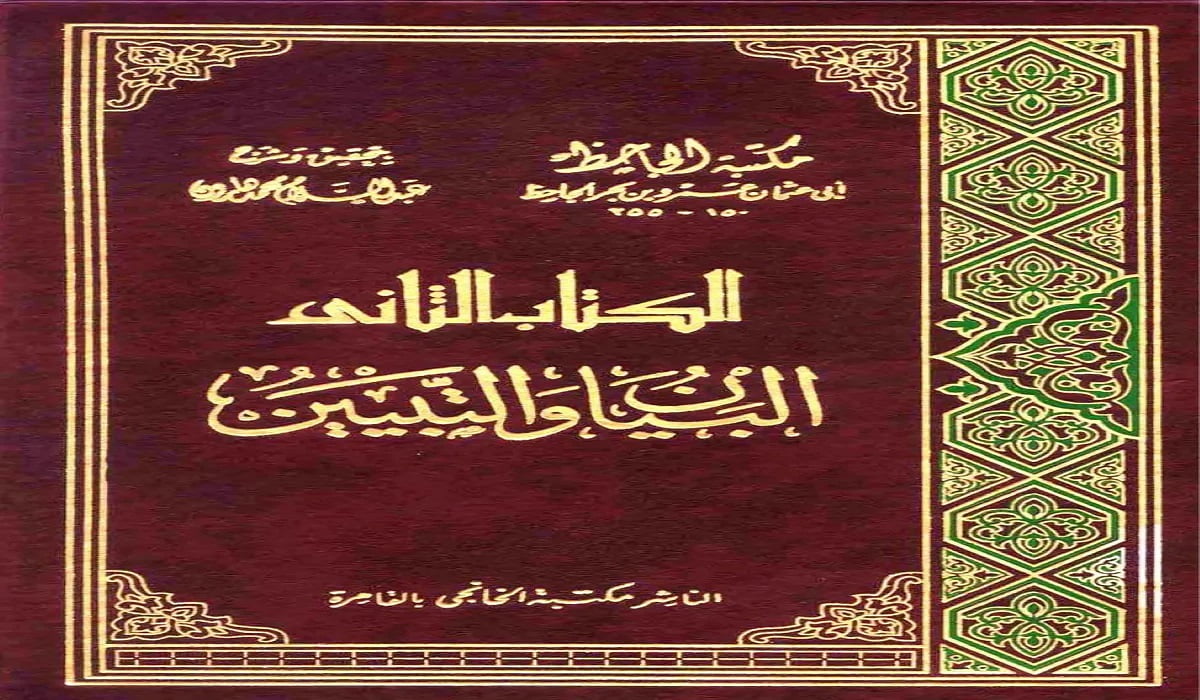 مكتبة الجاحظ
أبي عثمان عمرو بن بحر الجاحظ
١٥٠ - ٢٥٥
بتحقيق وشرح
عبد السلام محمد هارون
الكتاب الثاني
البَيَانُ وَالتَّبْيينُ
الناشر مكتبة الخانجى بالقاهرة